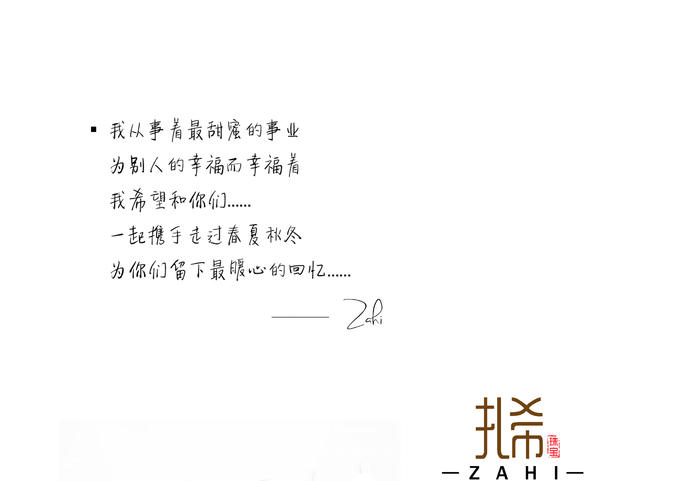 ▪ 我从事着最甜蜜的事业
为别人的幸福而幸福着
我希望和你们......
一起携手走过春夏秋冬
为你们留下最暖心的回忆......
—— Zahi
扎希
珠宝
— ZAHI —